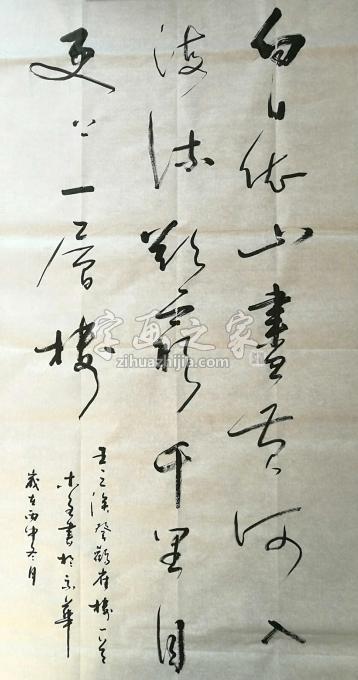 白日依山盡黄河入
海流欲窮千里目
更上一層樓
王之涣登鹳雀樓一首
書於京華
歲在丙申冬月
字画之家
zihuazhijia.com